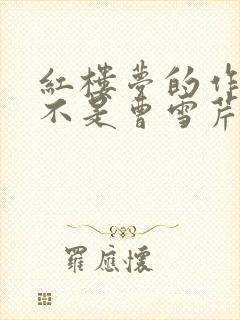 紅樓夢的作
不是曹雪芹
羅應懷